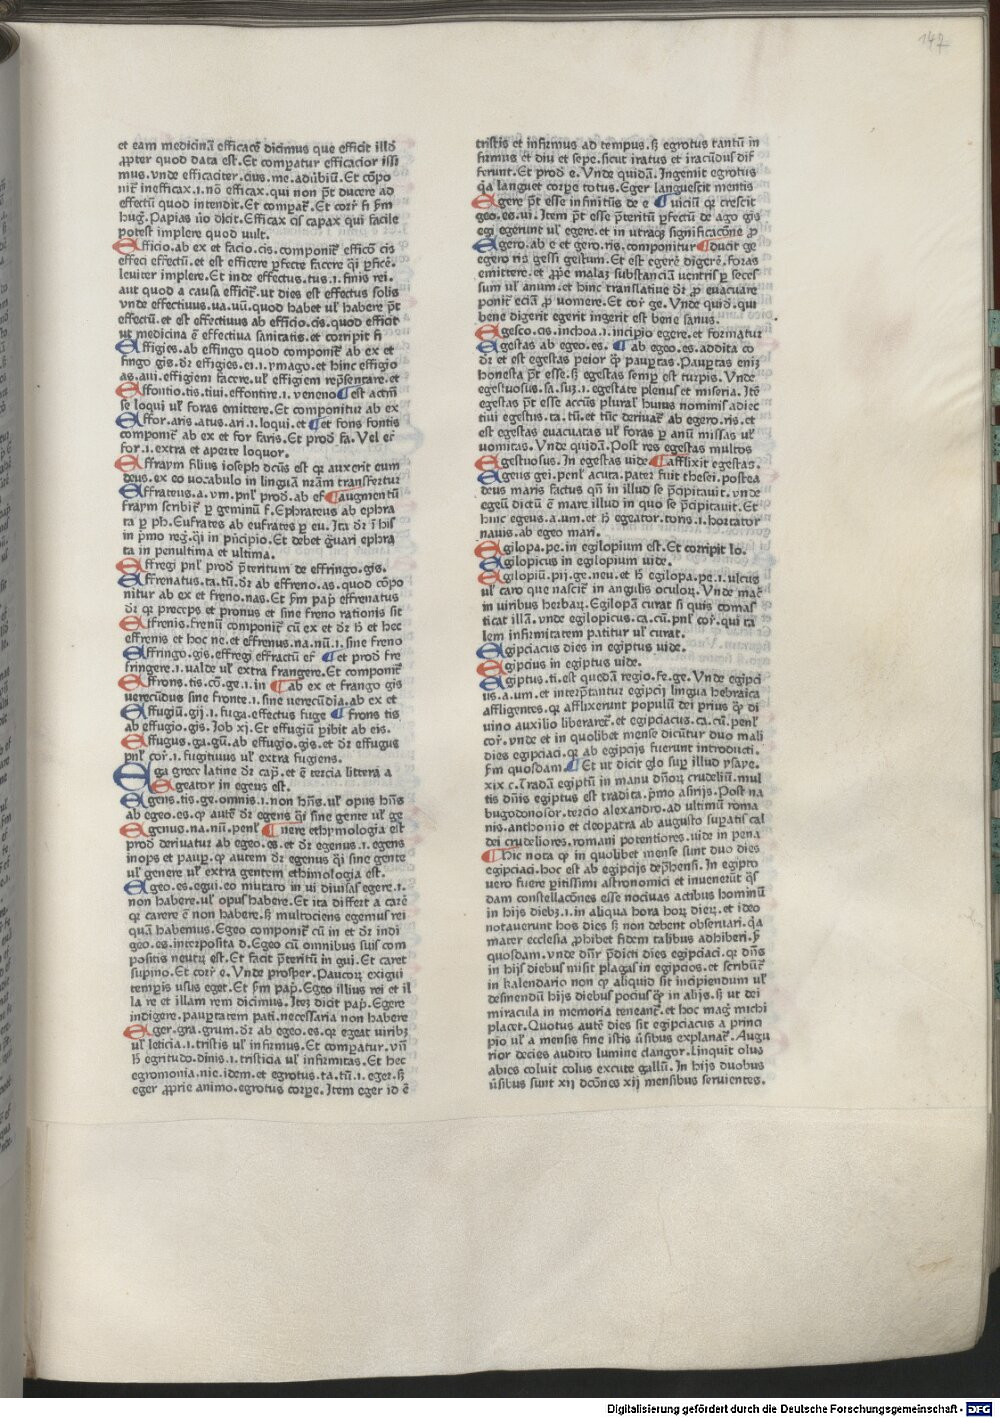 147
et eam medicinã efficacẽ dicimus que efficit illđ
ꝓpter quod data est. Et compatur efficacior issi
mus. vnde efficaciter. cius. me. aduẽbiũ. Et cõpo
nit᷑ inefficax .i. nõ efficax. qui non pt̃ ducere ad
effectũ quod intendit. Et compat᷑. Et corr̃ fi scd̃m
hug̃. Papias ño dicit. Efficax cis capax qui facile
potest implere quod vult.
Efficio. ab ex et facio. cis. componit᷑ efficõ cis
effeci effectũ. et est efficere ꝑfecte facere q̃i ꝑficẽ.
leviter implere. Et inde effectus. tus. i. finis rei.
aut quod a causa efficit᷑. ut dies est effectus solis
vnde effectiuus. ua. uũ. quod habet ul̃ habere pt̃
effectũ. et est effectiuus ab efficio. cis. quod efficit
ut medicina ẽ effectiua sanitatis. et corripit fi
Effigies. ab effingo quod componit᷑ ab ex et
fingo gis. dr̃ effigies. ei. i. ymago. et hinc effigio
as. aui. effigiem facere. ul̃ effigiem rep̃sentare. et
Effontio. tis. tiui. effontire. i. veneno ¶ est actiũ
se loqui ul̃ foras emittere. Et componitur ab ex
Effor. aris. atus. ari. i. loqui. et ¶ et fons fontis
componit᷑ ab ex et for faris. Et prod̃ fa. Vel ef
for. i. extra et aperte loquor.
Effraym filius ioseph dc̃us est qꝫ auxerit eum
deus. ex eo vocabulo in linguã nr̃am transfertur
Effrateus. a. vm. pnl̃ prod̃. ab ef ¶ augmentũ
fraym scribit᷑ ꝑ geminũ f. Ephrateus ab ephra
ta ꝑ ph. Eufrates ab eufrates ꝑ eu. Ita dr̃ ĩ his
in p̃mo reg̃. q̃i in p̃ncipio. Et debet g̃uari ephra
ta in penultima et ultima.
Effregi pnl̃ prod̃ p̃teritum de effringo. gis.
Effrenatus. ta. tũ. dr̃ ab effreno. as. quod cõpo
nitur ab ex et freno. nas. Et s̃m pap̃ effrenatus
dr̃ qꝫ preceps et pronus et sine freno rationis sit
Effrenis. frenũ componit᷑ cũ ex et dr̃ h̃ et hec
effrenis et hoc ne. et effrenus. na. nũ. i. sine freno
Effringo. gis. effregi effractũ ef ¶ et prod̃ fre
fringere. i. valde ul̃ extra frangere. Et componit᷑
Effrons. tis. cõ. ge. i. in ¶ ab ex et frango gis
uerecũdus sine fronte. i. sine uerecũdia. ab ex et
Effugiũ. gij. i. fuga. effectus fuge ¶ frons tis
ab effugio. gis. Job xj. Et effugiũ ꝑibit ab eis.
Effugus. ga. gũ. ab effugio. gis. et dr̃ effugus
pnl̃ cor̃. i. fugitiuus ul̃ extra fugiens.
Ega grece latine dr̃ cap̃. et ẽ tercia littera a
Egeator in egeus est.
Egens. tis. ge. omnis. i. non hñs. ul̃ opus hñs
ab egeo. es. qꝫ autẽ dr̃ egens q̃i sine gente ul̃ ge
Egenus. na. nũ. penl̃ ¶ nere ethymologia est
prod̃ deriuatur ab egeo. es. et dr̃ egenus. i. egens
inops et paup̃. qꝫ autem dr̃ egenus q̃i sine gente
ul̃ genere ul̃ extra gentem ethimologia est.
Egeo. es. egui. eo mutato in ui diuisas egere. i.
non habere. ul̃ opus habere. Et ita differt a carẽ
qꝫ carere ẽ non habere. sꝫ multociens egemus rei
quã habemus. Egeo componit᷑ cũ in et dr̃ indi
geo. es. interposita d. Egeo cũ omnibus suis com
positis neutꝝ est. Et facit p̃teritũ in gui. Et caret
supino. Et corr̃ e. Vnde prosper. Paucoꝝ exigui
temp̃is usus eget. Et s̃m pap̃. Egeo illius rei et il
la re et illam rem dicimus. Itẽ dicit pap̃. Egere
indigere. paup̃tatem pati. necessaria non habere
Eger. gra. grum. dr̃ ab egeo. es. qꝫ egeat uiribꝫ
ul̃ leticia. i. tristis ul̃ infirmus. Et compatur. vñ
h̃ egritudo. dinis. i. tristicia ul̃ infirmitas. Et hec
egromonia. nie. idem. et egrotus. ta. tũ. i. eger. sꝫ
eger ꝓprie animo. egrotus corpe. Item eger id ẽ
tristis et infirmus ad tempus. sꝫ egrotus tantũ in
firmus et diu et sepe. sicut iratus et iracũdus dif
ferunt. Et prod̃ e. Vnde quidã. Ingemit egrotus
q̃a languet corpe totus. Eger languescit mentis
Egere pt̃ esse infinitũs de e ¶ viciũ qꝫ crescit
geo. es. ui. Item pt̃ esse p̃teritũ ꝑfectũ de ago gis
egi egerunt ul̃ egere. et in utraqꝫ significacõne ꝓ
Egero. ab e et gero. ris. componitur ¶ ducit ge
egero ris gessi gestum. Et est egerẽ digerẽ. foras
emittere. et ꝓpe malaꝫ substanciã uentris ꝑ seces
sum ul̃ anum. et hinc translatiue dr̃ ꝓ euacuare
ponit᷑ eciã ꝓ uomere. Et cor̃ ge. Vnde quid̃. qui
bene digerit egerit ingerit est bene sanus.
Egesco. cis. inchoa. i. incipio egere. et formatur
Egestas ab egeo. es. ¶ ab egeo. es. addita co
dr̃ et est egestas peior qꝫ paup̃tas. Paup̃tas eniꝫ
honesta pt̃ esse. sꝫ egestas semp̃ est turpis. Vnde
egestuosus. sa. suꝫ. i. egestate plenus et miseria. Itẽ
egestas pt̃ esse accũs plural̃ huius nominis adiec
tiui egestus. ta. tũ. et tũc deriuat᷑ ab egero. ris. et
est egestas euacuatas ul̃ foras ꝑ anũ missas ul̃
uomitas. Vnde quidã. Post res egestas multos
Egestuosus. In egestas uide. ¶ afflixit egestas.
Egeus gei. penl̃ acuta. pater fuit thesei. postea
deus maris factus qñ in illud se p̃cipitauit. vnde
egeũ dictũ ẽ mare illud in quo se p̃cipitauit. Et
hinc egeus. a. um. et h̃ egeator. toris. i. hortator
nauis. ab egeo mari.
Egilopa. pe. in egilopium est. Et corripit lo.
Egilopicus in egilopium uide.
Egilopiũ. pij. ge. neu. et h̃ egilopa. pe. i. ulcus
ul̃ caro que nascit᷑ in angulis oculoꝝ. Vnde mac̃
in uiribus herbaꝝ. Egilopã curat si quis comas
ticat illã. vnde egilopicus. ca. cũ. pnl̃ cor̃. qui ta
lem infirmitatem patitur ul̃ curat.
Egipciacus dies in egiptus uide.
Egipcius in egiptus uide.
Egiptus. ti. est quedã regio. fe. ge. Vnde egipci
us. a. um. et interp̃tantur egipcij lingua hebraica
affligentes. qꝫ afflixerunt populũ dei prius qꝫ di
uino auxilio liberaret᷑. et egipciacus. ca. cũ. penl̃
cor̃. vnde et in quolibet mense dicũtur duo mali
dies egipciaci. qꝫ ab egipcijs fuerunt introducti.
s̃m quosdam. ¶ Et ut dicit glo sup̃ illud ysaye.
xix c. Tradã egiptũ in manu dñoꝝ crudeliũ. mul
tis dñis egiptus est tradita. p̃mo assirijs. Post na
bugodonosor. tercio alexandro. ad ultimũ roma
nis. anthonio et cleopatra ab augusto sup̃atis cal
dei crudeliores. romani potentiores. uide in pena
¶ Hic nota qꝫ in quolibet mense sunt duo dies
egipciaci. hoc est ab egipcijs dep̃hensi. In egipto
uero fuere ꝑitissimi astronomici et inuenerũt q̃s
dam constellacõnes esse nociuas actibus hominũ
in hijs diebꝫ. i. in aliqua hora hoꝝ dieꝝ. et ideo
notauerunt hos dies sꝫ non debent obseruari. q̃a
mater ecclesia ꝓhibet fidem talibus adhiberi. s̃
quosdam. vnde dñr p̃dicti dies egipciaci. qꝫ dñs
in hijs diebus misit plagas in egipcios. et scribũt᷑
in kalendario non qꝫ aliquid sit incipiendum ul̃
desinendũ hijs diebus pocius qꝫ in alijs. sꝫ ut dei
miracula in memoria teneant᷑. et hoc mag̃ michi
placet. Quotus autẽ dies sit egipciacus a princi
pio ul̃ a mensis fine istis ũsibus explanat᷑. Augu
rior decies audito lumine clangor. Linquit olus
abies coluit colus excute gallũ. In hijs duobus
ũsibus sunt xij dcõnes xij mensibus seruientes.
Digitalisierung gefördert durch die Deutsche Forschungsgemeinschaft - DFG